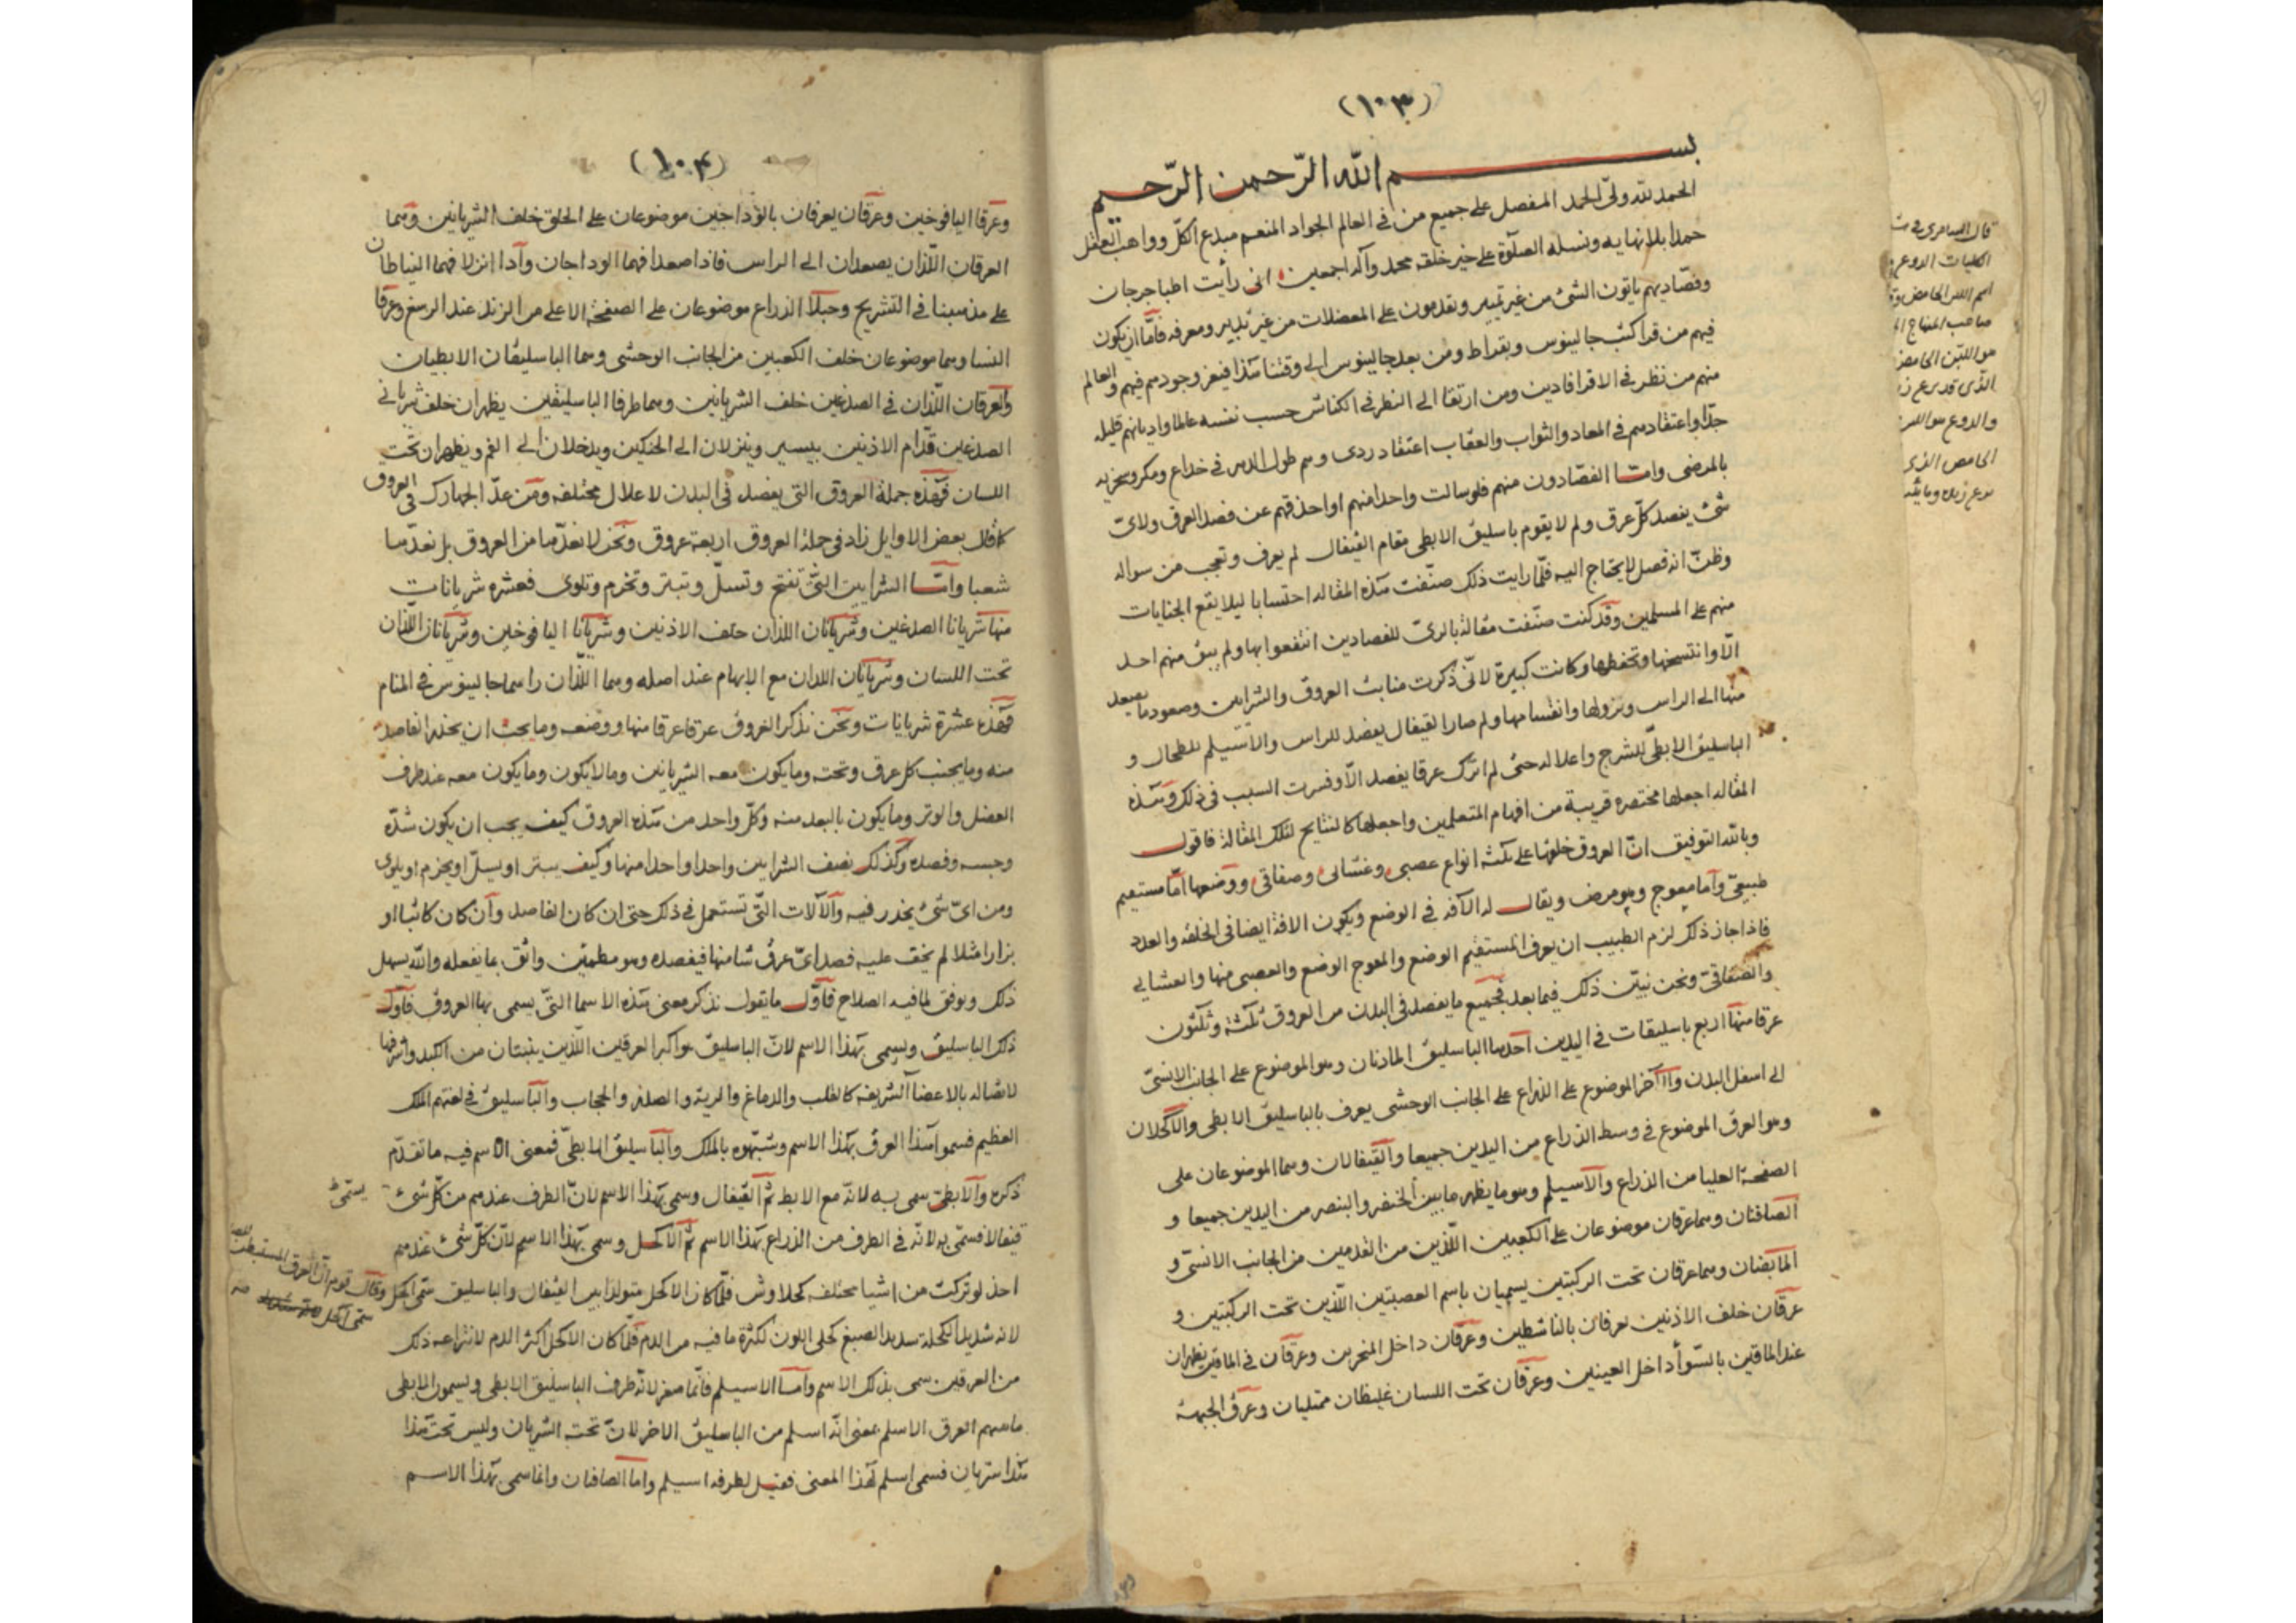 (١٠٣)
بسم الله الرّحمن الرّحيم
الحمد لله ولىّ الحمد المفضل على جميع من فى العالم الجواد المنعم مبدع الكلّ وواهب العقل
حمدا بلا نهايه ونسله الصلوة على خير خلقه محمد وآله اجمعين انى رأيت اطبا جرجان
وفصّاديهم ياتون الشئ من غير تمييز ويقدمون على المعضلات من غير تدبير ومعرفه فامّا ان يكون
فيهم من قرا كتب جالينوس وبقراط ومن بعد جالينوس الى وقتنا هذا فيعز وجودهم فيهم والعالم
منهم من نظر فى الاقرافادين ومن ارتقا الى النظر فى الكناش حسب نفسه عالما واديانهم قليله
جدّا واعتقادهم فى المعاد والثواب والعقاب اعتقاد ردى وهم طول الدهر فى خداع ومكر وسخريه
بالمرضى وامّا الفصّادون منهم فلو سالت واحدا منهم او احذقهم عن فصد العرق ولاىّ
شئ يفصد كلّ عرق ولم لا يقوم باسليق الابطى مقام القيفال لم يعرف وتعجب من سواله
وظنّ انه فصل لا يحتاج اليه فلمّا رايت ذلك صنّفت هذه المقاله احتسابا ليلا يقع الجنايات
منهم على المسلمين وقد كنت صنّفت مقالة بالرىّ للفصادين انتفعوا بها ولم يبق منهم احد
الّا وانتسخها وتحفظها وكانت كبيرة لانّى ذكرت منابت العروق والشرايين وصعود ما يصعد
منها الى الراس ونزولها وانقسامها ولم صار القيفال يفصد للراس والاسيلم للطحال و
الباسليق الابطىّ للشرج واعلاله حتى لم اترك عرقا يفصد الّا وفسرت السبب فى ذلك وهذه
المقاله اجعلها مختصره قريبة من افهام المتعلمين واجعلها كالنتايج لتلك المقالة فاقول
وبالله التوفيق انّ العروق خلقتها على ثلثه انواع عصبى وغشائى وصفاقى ووضعها امّا مستقيم
طبيعىّ وامّا معوج وهو مرض ويقال له الآفه فى الوضع ويكون الافة ايضا فى الخلقه والعدد
فاذا جاز ذلك لزم الطبيب ان يعرف المستقيم الوضع والمعوج الوضع والعصبى منها والغشايى
والصفاقىّ ونحن نبيّن ذلك فيما بعد فجميع ما يفصد فى البدن من العروق ثلثة وثلثون
عرقا منها اربع باسليقات فى اليدين احدها الباسليق الماديان وهو الموضوع على الجانب الانسىّ
الى اسفل البدن والآخر الموضوع على الذراع على الجانب الوحشى يعرف بالباسليق الابطى والاكحلان
وهو العرق الموضوع فى وسط الذراع من اليدين جميعا والقيفالان وهما الموضوعان على
الصفحة العليا من الذراع والاسيلم وهو ما يظهر ما بين الخنصر والبنصر من اليدين جميعا و
الصافنان وهما عرقان موضوعان على الكعبين اللّذين من القدمين من الجانب الانسىّ و
المابضان وهما عرقان تحت الركبتين يسميان باسم العصبتين اللّذين تحت الركبتين و
عرقان خلف الاذنين يعرفان بالناشطين وعرقان داخل المنخرين وعرقان فى الماقين يظهران
عند الماقين بالسّوأ داخل العينين وعرقان تحت اللسان غليظان ممتليان وعرق الجبهة
قال السامرى فى
الكليات الدوغ
اسم اللبن الحامض
صاحب المنهاج
هو اللبن الحامض
الذى قد نزع
والدوغ هو اللبن
الحامض الذى
نزع زبده
(١٠٤)
وعرقا اليافوخين وعرقان يعرفان بالوداجين موضوعان على الحلق خلف الشريانين وهما
العرقان اللّذان يصعدان الى الراس فاذا صعدا فهما الوداجان واذا انزلا فهما النياطان
على مذهبنا فى التشريح وحبلا الذراع موضوعان على الصفحة الاعلى من الزند عند الرسغ وعرقا
النسا وهما موضوعان خلف الكعبين من الجانب الوحشى وهما الباسليقان الابطيان
والعرقان اللّذان فى الصدغين خلف الشريانين وهما طرفا الباسليقين يظهران خلف شريانى
الصدغين قدّام الاذنين بيسير وينزلان الى الحنكين ويدخلان الى الفم ويظهران تحت
اللسان فهذه جملة العروق التى يفصد فى البدن لاعلال مختلفه ومن عدّ الجهارك فى العروق
كما قال بعض الاوايل زاد فى جملة العروق اربعة عروق ونحن لا نعدّها من العروق بل نعدّها
شعبا وامّا الشرايين الّتى تفتح وتسلّ وتبتر وتخرم وتلوى فعشره شريانات
منها شريانا الصدغين وشريانان اللذان خلف الاذنين وشريانا اليافوخين وشريانان اللّذان
تحت اللسان وشريانان اللذان مع الابهام عند اصله وهما اللّذان راهما جالينوس فى المنام
فهذه عشرة شريانات ونحن نذكر العروق عرقا عرقا منها ووضعه وما يجب ان يحذر الفاصد
منه وما يجنب كل عرق وتحته وما يكون معه الشريانين وما لا يكون وما يكون معه عند طرف
العضل والوتر وما يكون بالبعد منه وكلّ واحد من هذه العروق كيف يجب ان يكون شدّه
وحبسه وفصده وكذلك نصف الشرايين واحدا واحدا منها وكيف يبتر او يسلّ او يخرم او يلوى
ومن اىّ شئ يحذر فيه والآلات الّتى تستعمل فى ذلك حتى ان كان الفاصد وان كان كاتبا او
بزارا مثلا لم يخف عليه فصد اىّ عرق شا منها فيفصده وهو مطمئن واثق بما يفعله والله يسهل
ذلك ويوفق لما فيه الصلاح فاوّل ما نقول نذكر معنى هذه الاسما التّى يسمى بها العروق فاوّل
ذلك الباسليق ويسمى بهذا الاسم لانّ الباسليق هو اكبر العرقين اللّذين ينبتان من الكبد واشرفها
لاتصاله بالاعضا الشريفه كالقلب والدماغ والرية والصدر والحجاب والباسليق فى لغتهم الملك
العظيم فسموا هذا العرق بهذا الاسم وشبّهوه بالملك والباسليق الابطىّ فمعنى الاسم فيه ما تقدّم
ذكره والابطىّ سمى به لانّه مع الابط ثمّ القيفال وسمى بهذا الاسم لانّ الطرف عندهم من كلّ شئ
قيفالا فسمّى به لانّه فى الطرف من الذراع بهذا الاسم ثمّ الاكحل وسمى بهذا الاسم لانّ كلّ شئ عندهم
احذ لو تركت من اشيا مختلفه كحلاوش فلمّا كان الاكحل متولدا بين القيفال والباسليق سمّى اكحل
لانه شديد الكحلة شديد الصبغ كحلى اللون لكثرة ما فيه من الدم فلمّا كان الاكحل اكثر الدم لانتزاعه ذلك
من العرقين سمى بذلك الاسم وامّا الاسيلم فانّما صغر لانّه طرف الباسليق الابطى ويسمون الابطى
ما سهم العرق الاسلم بمعنى انّه اسلم من الباسليق الاخر لانّ تحته الشريان وليس تحت هذا
هذا شريان فسمى اسلم لهذا المعنى فقيل لطرفه اسيلم واما الصافنان وانما سمى بهذا الاسم
يسمّى
وقال قوم انّ العرق
سمّى اكحل